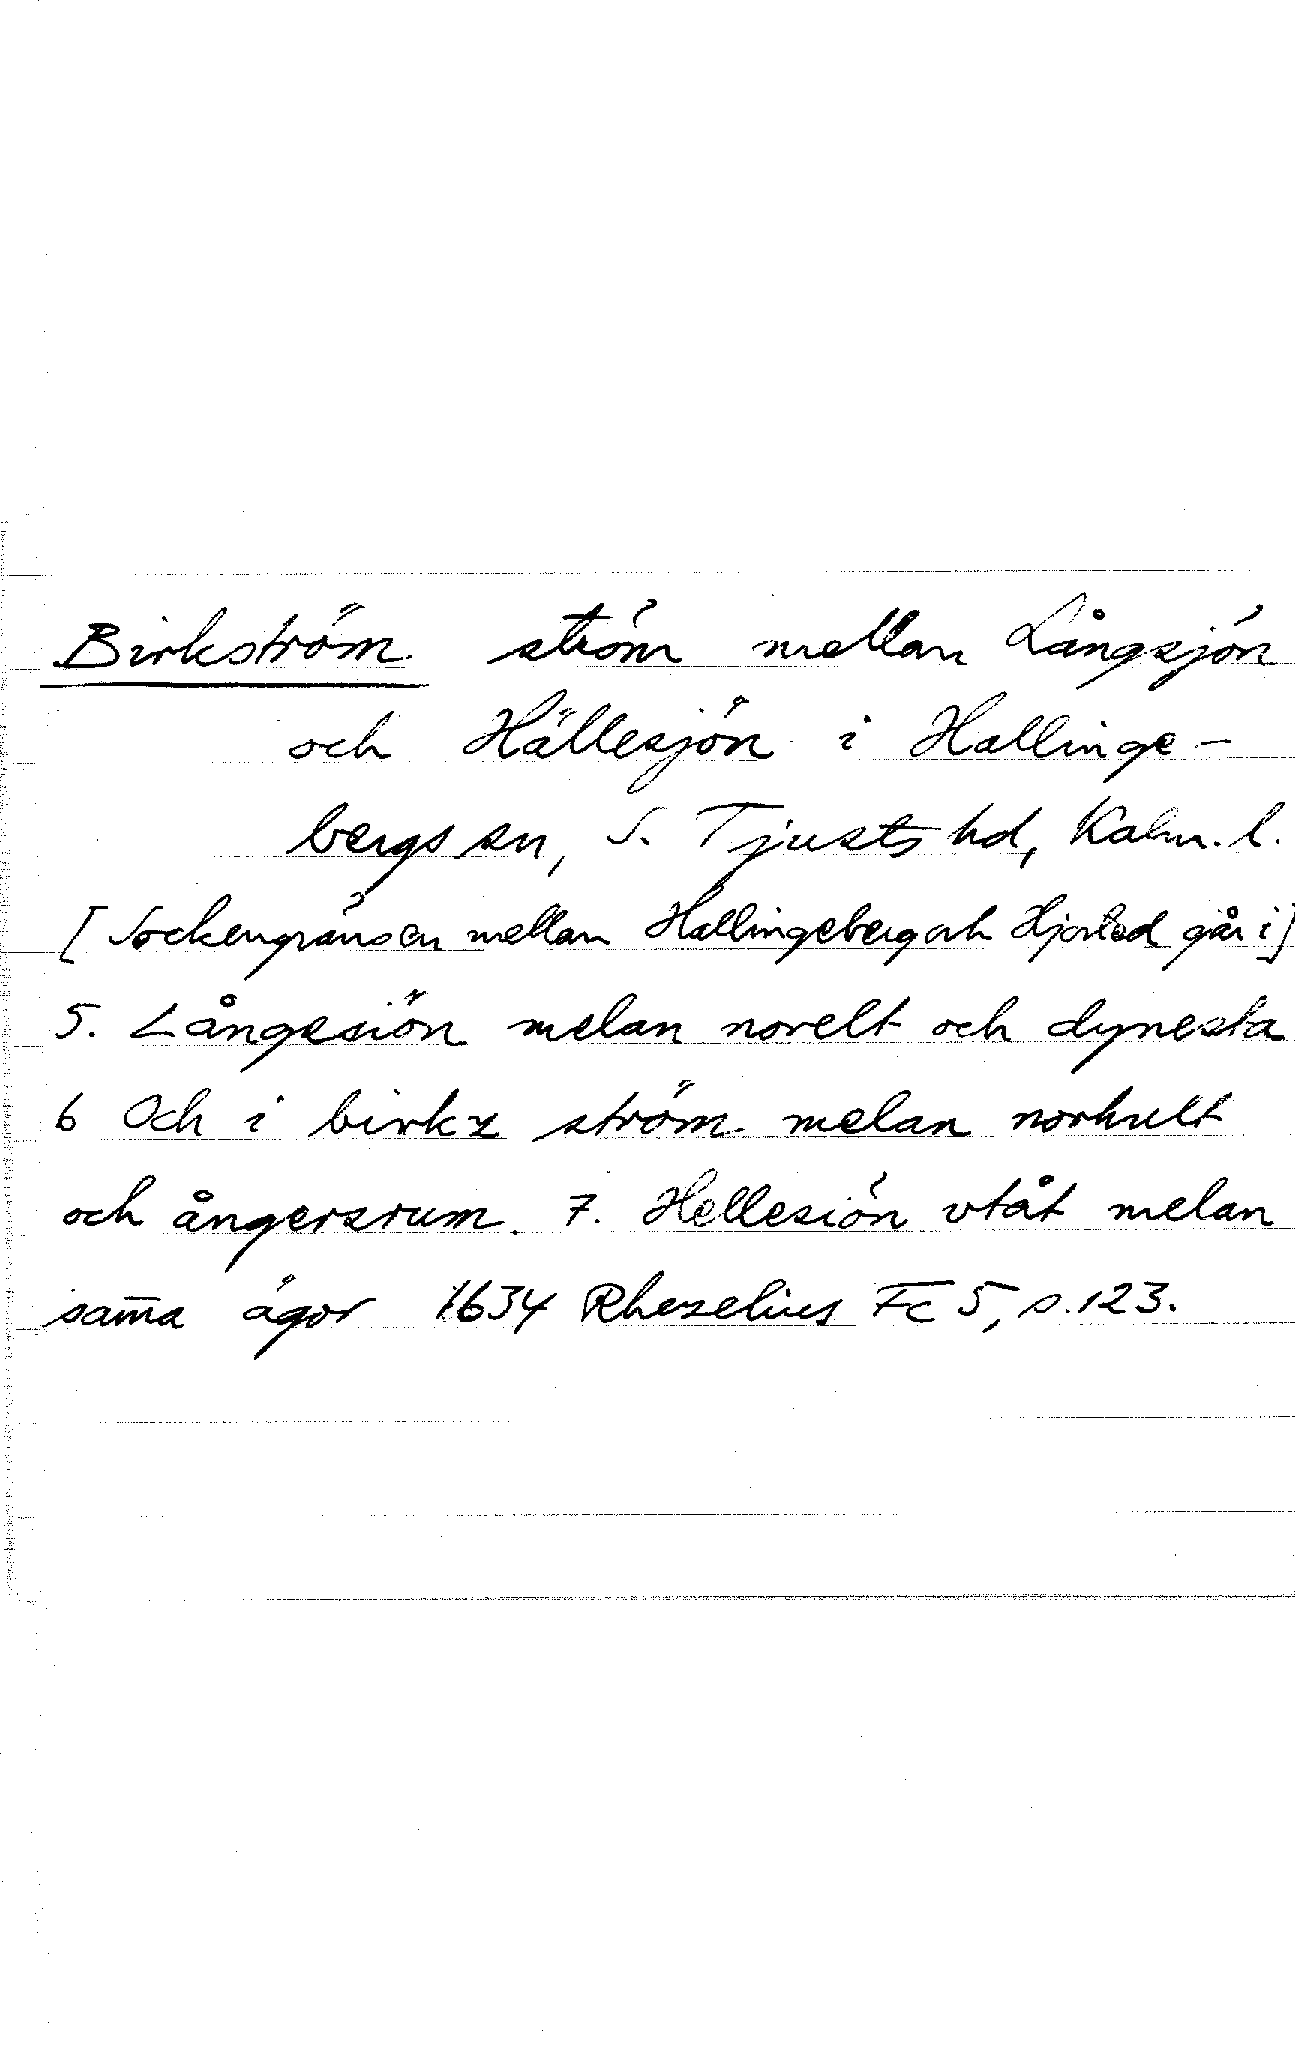 Birkström ström mellan Långsjön
och Hällesjön i Hallinge-
bergs sn, S. Tjusts hd, Kalm. l.
[Sockengränsen mellan Hallingeberg och Hjorted går i]
5. Långesiön melan norelt och dynesta
6 Och i birkz ström melan norhult
och ångersrum. 7. Hellesiön vtåt melan
sam̅a ägor 1634 Rhezelius Fc 5, s. 123.